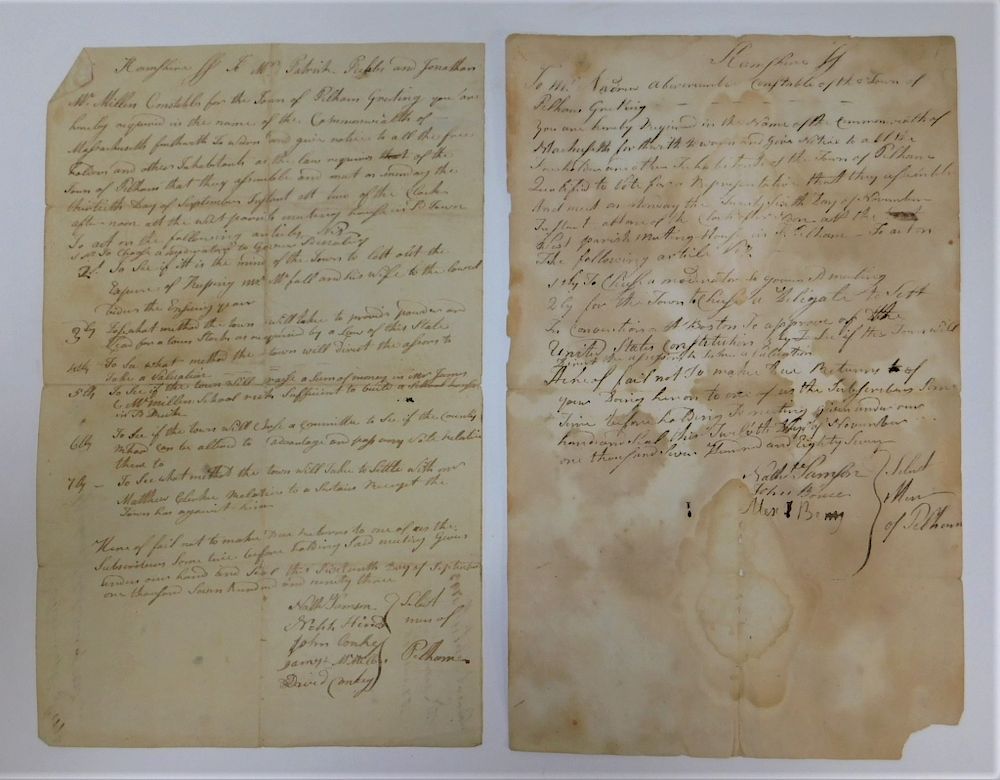 Hampshire Ss To Mr Patrick Peebles and Jonathan
McMillen Constable for the Town of Pelham Greeting you are
hereby required in the name of the Commonwealth of
Massachusetts forthwith To warn and give notice to all the free
holders and other Inhabitants as the law requires of the
Town of Pelham that they assemble and meet on monday the
thirtieth Day of September Instant att two of the Clock
after noon att the west parish meeting house in Sd Town
To act on the following articles Viz
1st To Choose a moderator to Govern Sd meeting
2 To See if itt is the mind of the Town to lett out the
Expence of Keeping mr McFall and his wife to the lowest
bidder the Ensuing year
3ly To see what method the town will take to provide powder and
lead for a town Stock as required by a Law of this State
4thly To See what method the town will Direct the assessors to
take a Valuation
5thly To See if the town will raise a Sum of money in mr James
McMillen School Sufficient to build a School house
in Sd
6thly To See if the town will Chuse a Committee to See if the County
Road can be altered to advantage and pass any Vote Relative
there to
7ly To See what method the town will take to Settle with mr
Matthew Clark Relative to a Receipt the
Town has against him
Here of fail not to make Due Returns to one of us the
Subscribers Some time before holding Said meeting Given
under our hand and Seal this Day of September
one thousand Seven hundred and ninety three
Nathl Samson
Hinds
John Conkey
James McMillen
David Conkey
Select
men of
Pelham
Hampshire Ss
To Mr Andrew Abercrombie Constable of the Town of
Pelham Greeting
You are hereby Required in the Name of the Commonwealth of
Massachusetts forthwith to warn and Give Notice to all the
Freeholders and other Inhabitants of the Town of Pelham
Qualified to Vote for a Representative that they assemble
and meet on monday the Twenty Sixth Day of November
Instant at one of the Clock after Noon att the
West parish Meeting House in Sd Pelham To act on
The following article Viz
1stly To Chuse a moderator to govern Sd meeting
2ly for the Town to Chuse a Delligate to Sett
In Convention Att Boston To approve of the
United States Constitution 3ly To See if the Town will
the assessors to take a Valuation
Here of fail not To make Due Returns of
your Doing hereon to one of us the Subscribers Some
Time before holding Sd meeting given under our
hand and Seal this Twelfth Day of November
one thousand Seven Hundred and Eighty Seven
Nathl Samson
John Bruce
Alex Berry
Select
Men
of Pelham